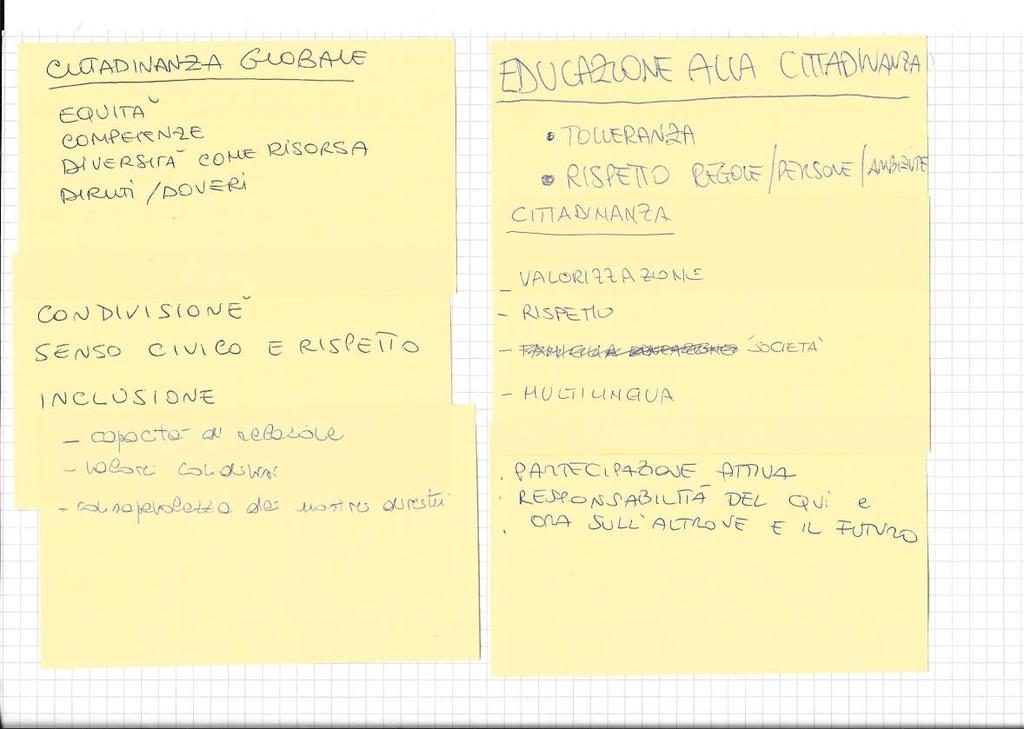 CITTADINANZA GLOBALE
EQUITÀ
COMPETENZE
DIVERSITÀ COME RISORSA
DIRITTI / DOVERI
CONDIVISIONE
SENSO CIVICO E RISPETTO
INCLUSIONE
- capacità di relazione
- valori condivisi
- consapevolezza dei nostri diritti
EDUCAZIONE ALLA CITTADINANZA
• TOLLERANZA
• RISPETTO REGOLE/PERSONE/AMBIENTE
CITTADINANZA
- VALORIZZAZIONE
- RISPETTO
- SOCIETÀ
- MULTILINGUA
. PARTECIPAZIONE ATTIVA
. RESPONSABILITÀ DEL QUI e
. ORA SULL'ALTROVE E IL FUTURO